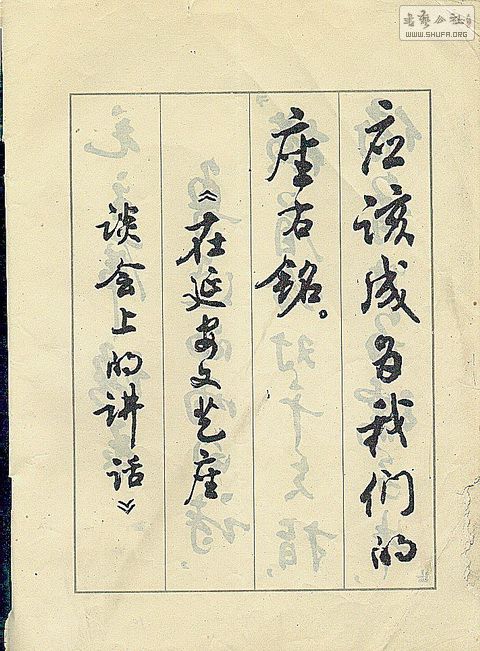 应该成为我们的
座右铭。
《在延安文艺座
谈会上的讲话》
書藝公社
WWW.SHUFA.ORG